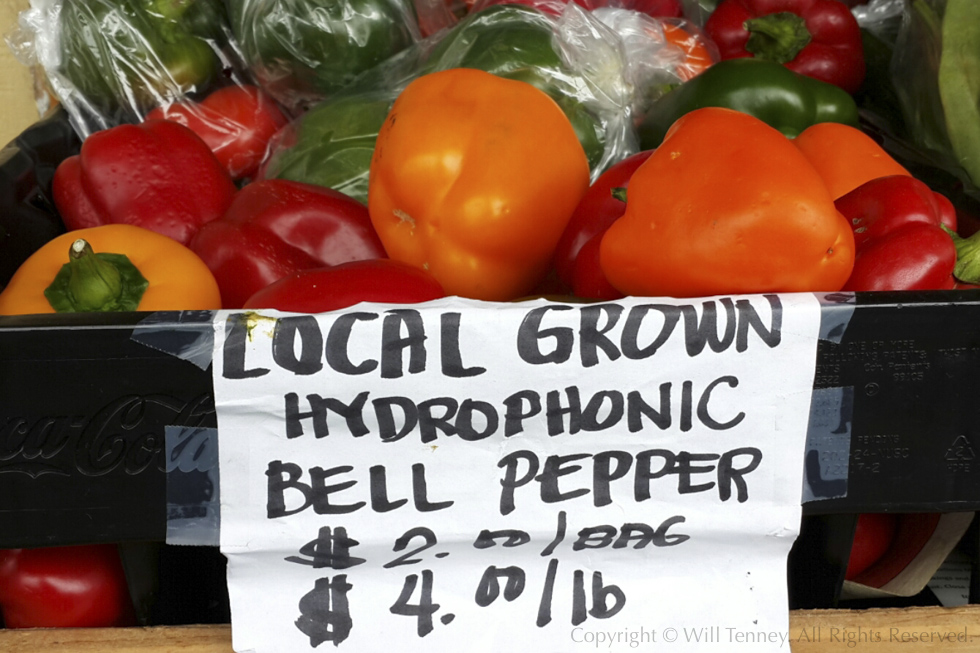 LOCAL GROWN
HYDROPHONIC
BELL PEPPER
$2.00/BAG
$4.00/lb
Coca-Cola
Copyright © Will Tenney. All Rights Reserved.